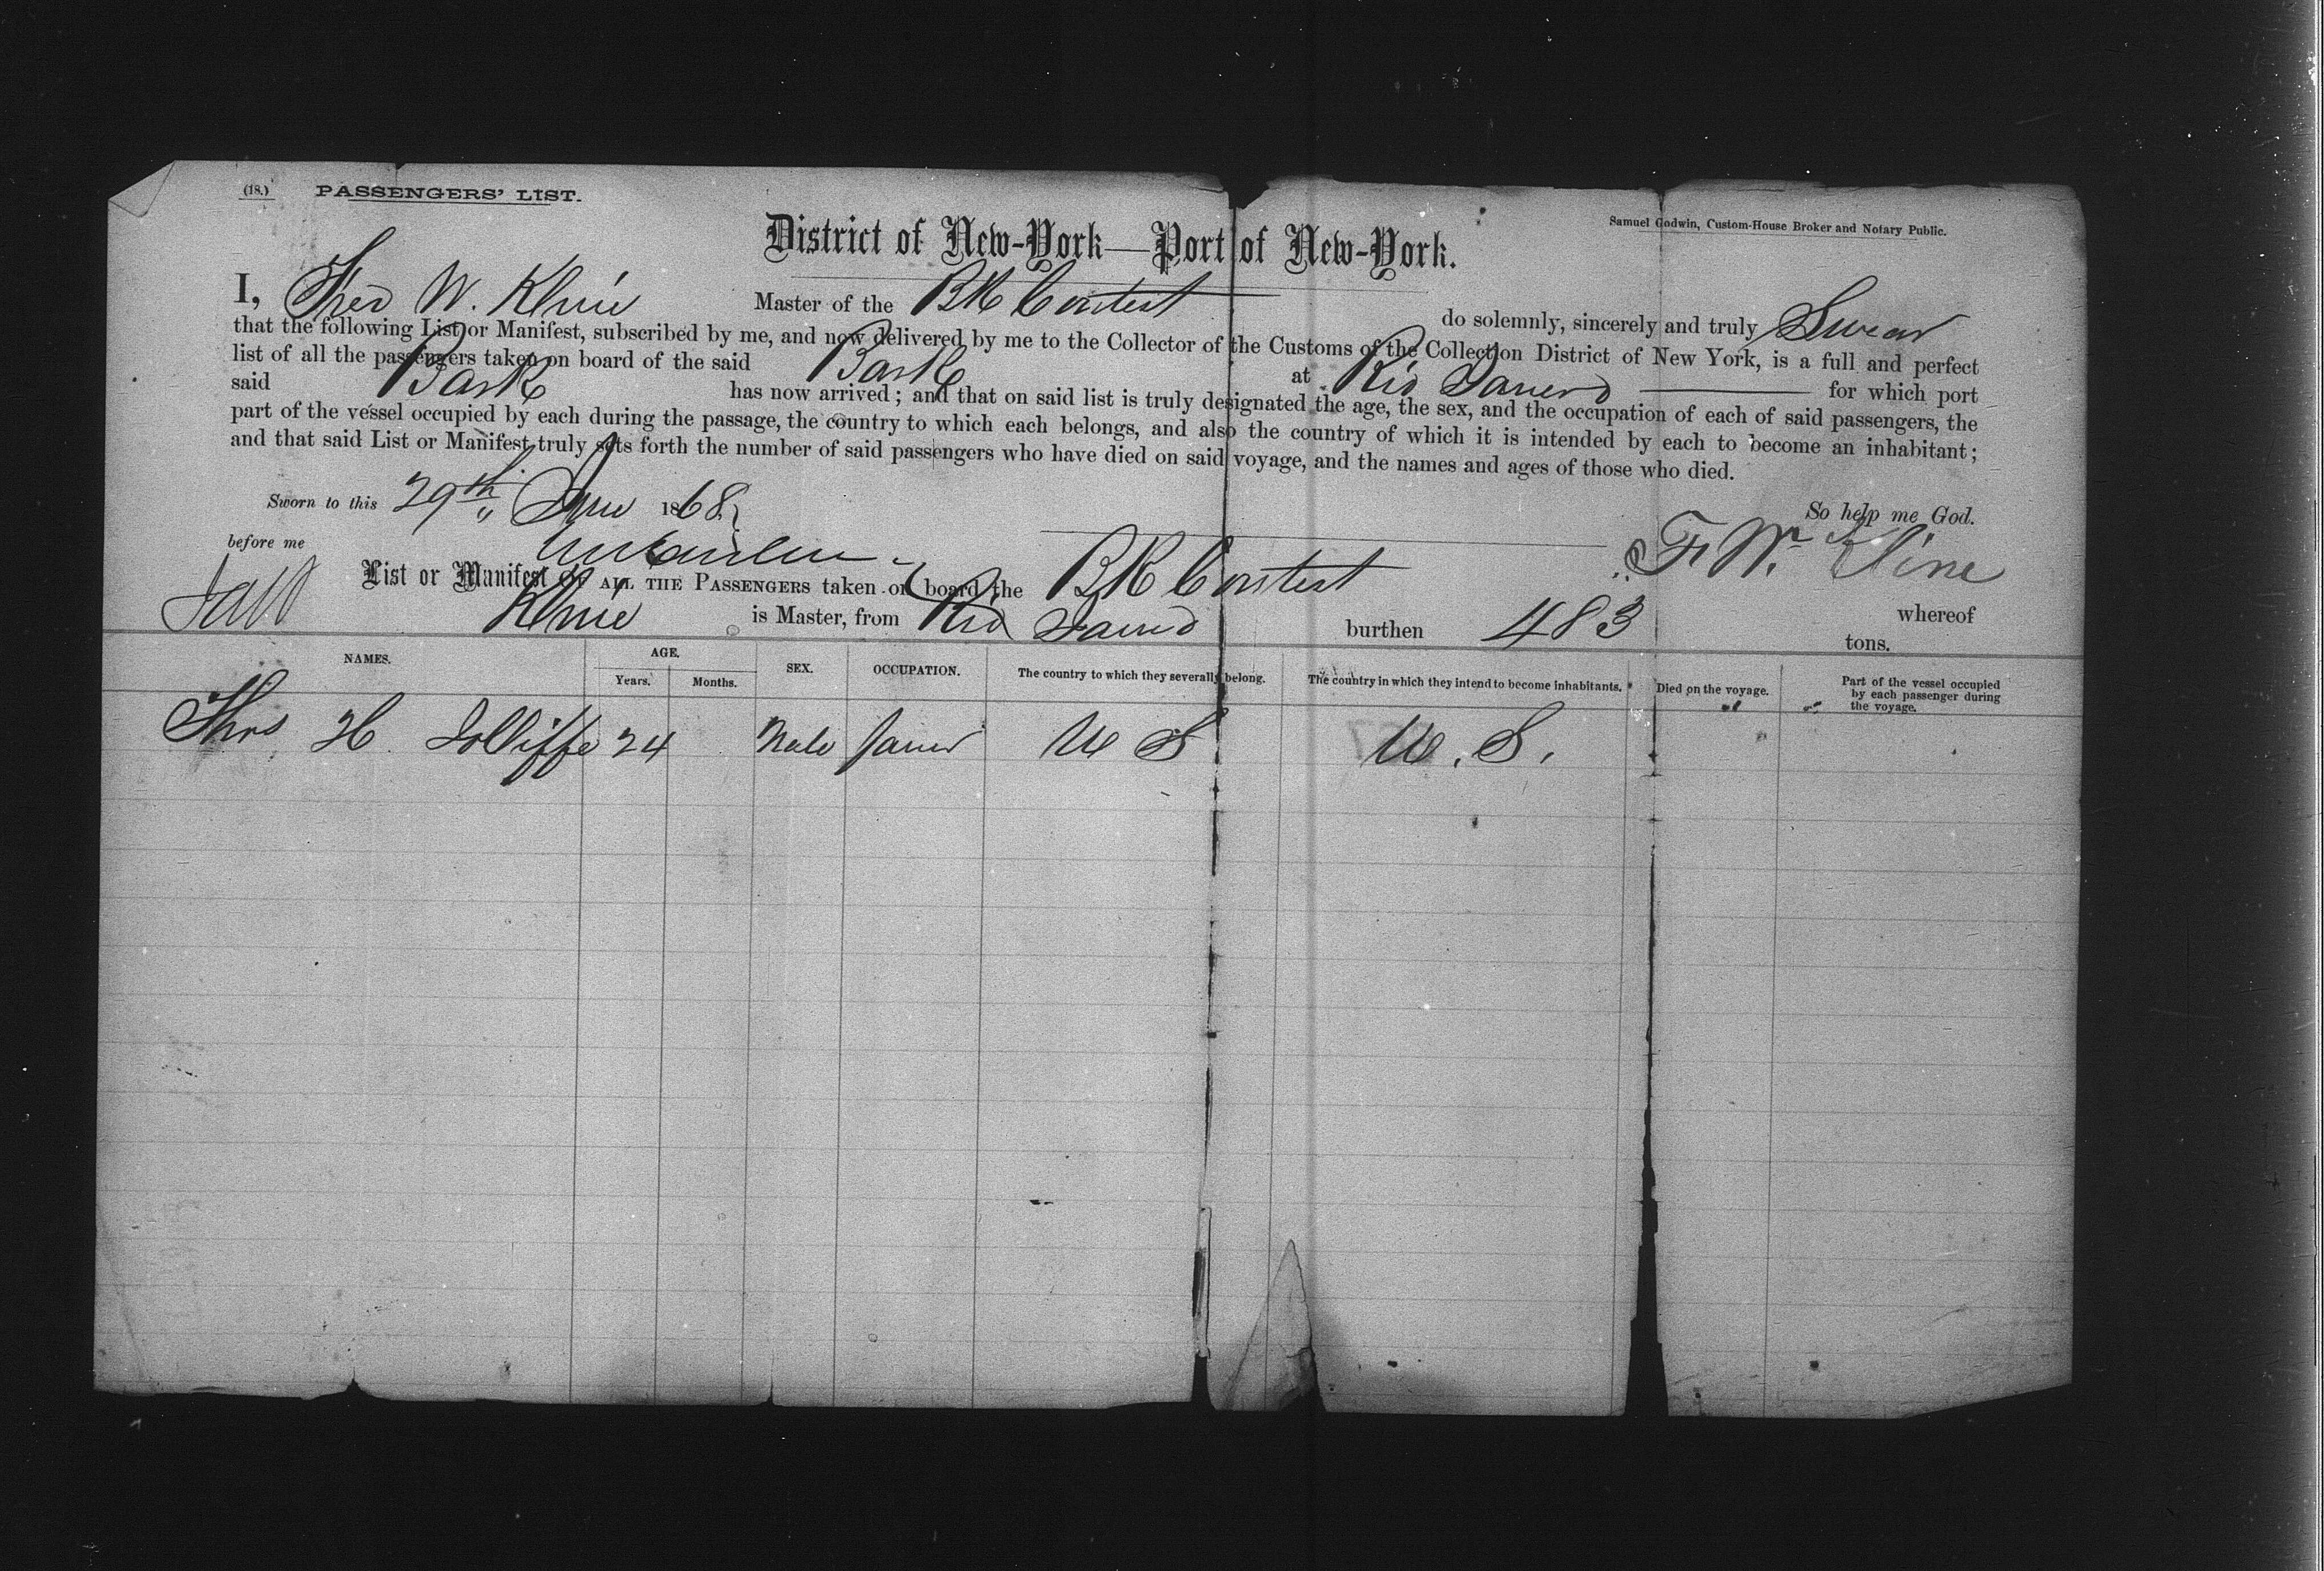 (18.) PASSENGERS' LIST.
Samuel Godwin, Custom-House Broker and Notary Public.
District of New-York—Port of New-York.
I, Fred W. Kline Master of the BK Contest do solemnly, sincerely and truly Swear
that the following List or Manifest, subscribed by me, and now delivered by me to the Collector of the Customs of the Collection District of New York, is a full and perfect
list of all the passengers taken on board of the said Bark at Rio Janeiro for which port
said Bark has now arrived; and that on said list is truly designated the age, the sex, and the occupation of each of said passengers, the
part of the vessel occupied by each during the passage, the country to which each belongs, and also the country of which it is intended by each to become an inhabitant;
and that said List or Manifest truly sets forth the number of said passengers who have died on said voyage, and the names and ages of those who died.
Sworn to this 29th June 1868
So help me God.
before me
F W. Kline
List or Manifest OF ALL THE PASSENGERS taken on board the BK Contest whereof
Kline is Master, from Rio burthen 483 tons.
NAMES. AGE. Years. Months. SEX. OCCUPATION. The country to which they severally belong. The country in which they intend to become inhabitants. Died on the voyage. Part of the vessel occupied by each passenger during the voyage.
Thos H. Jolliffe 24 Male U S U. S.